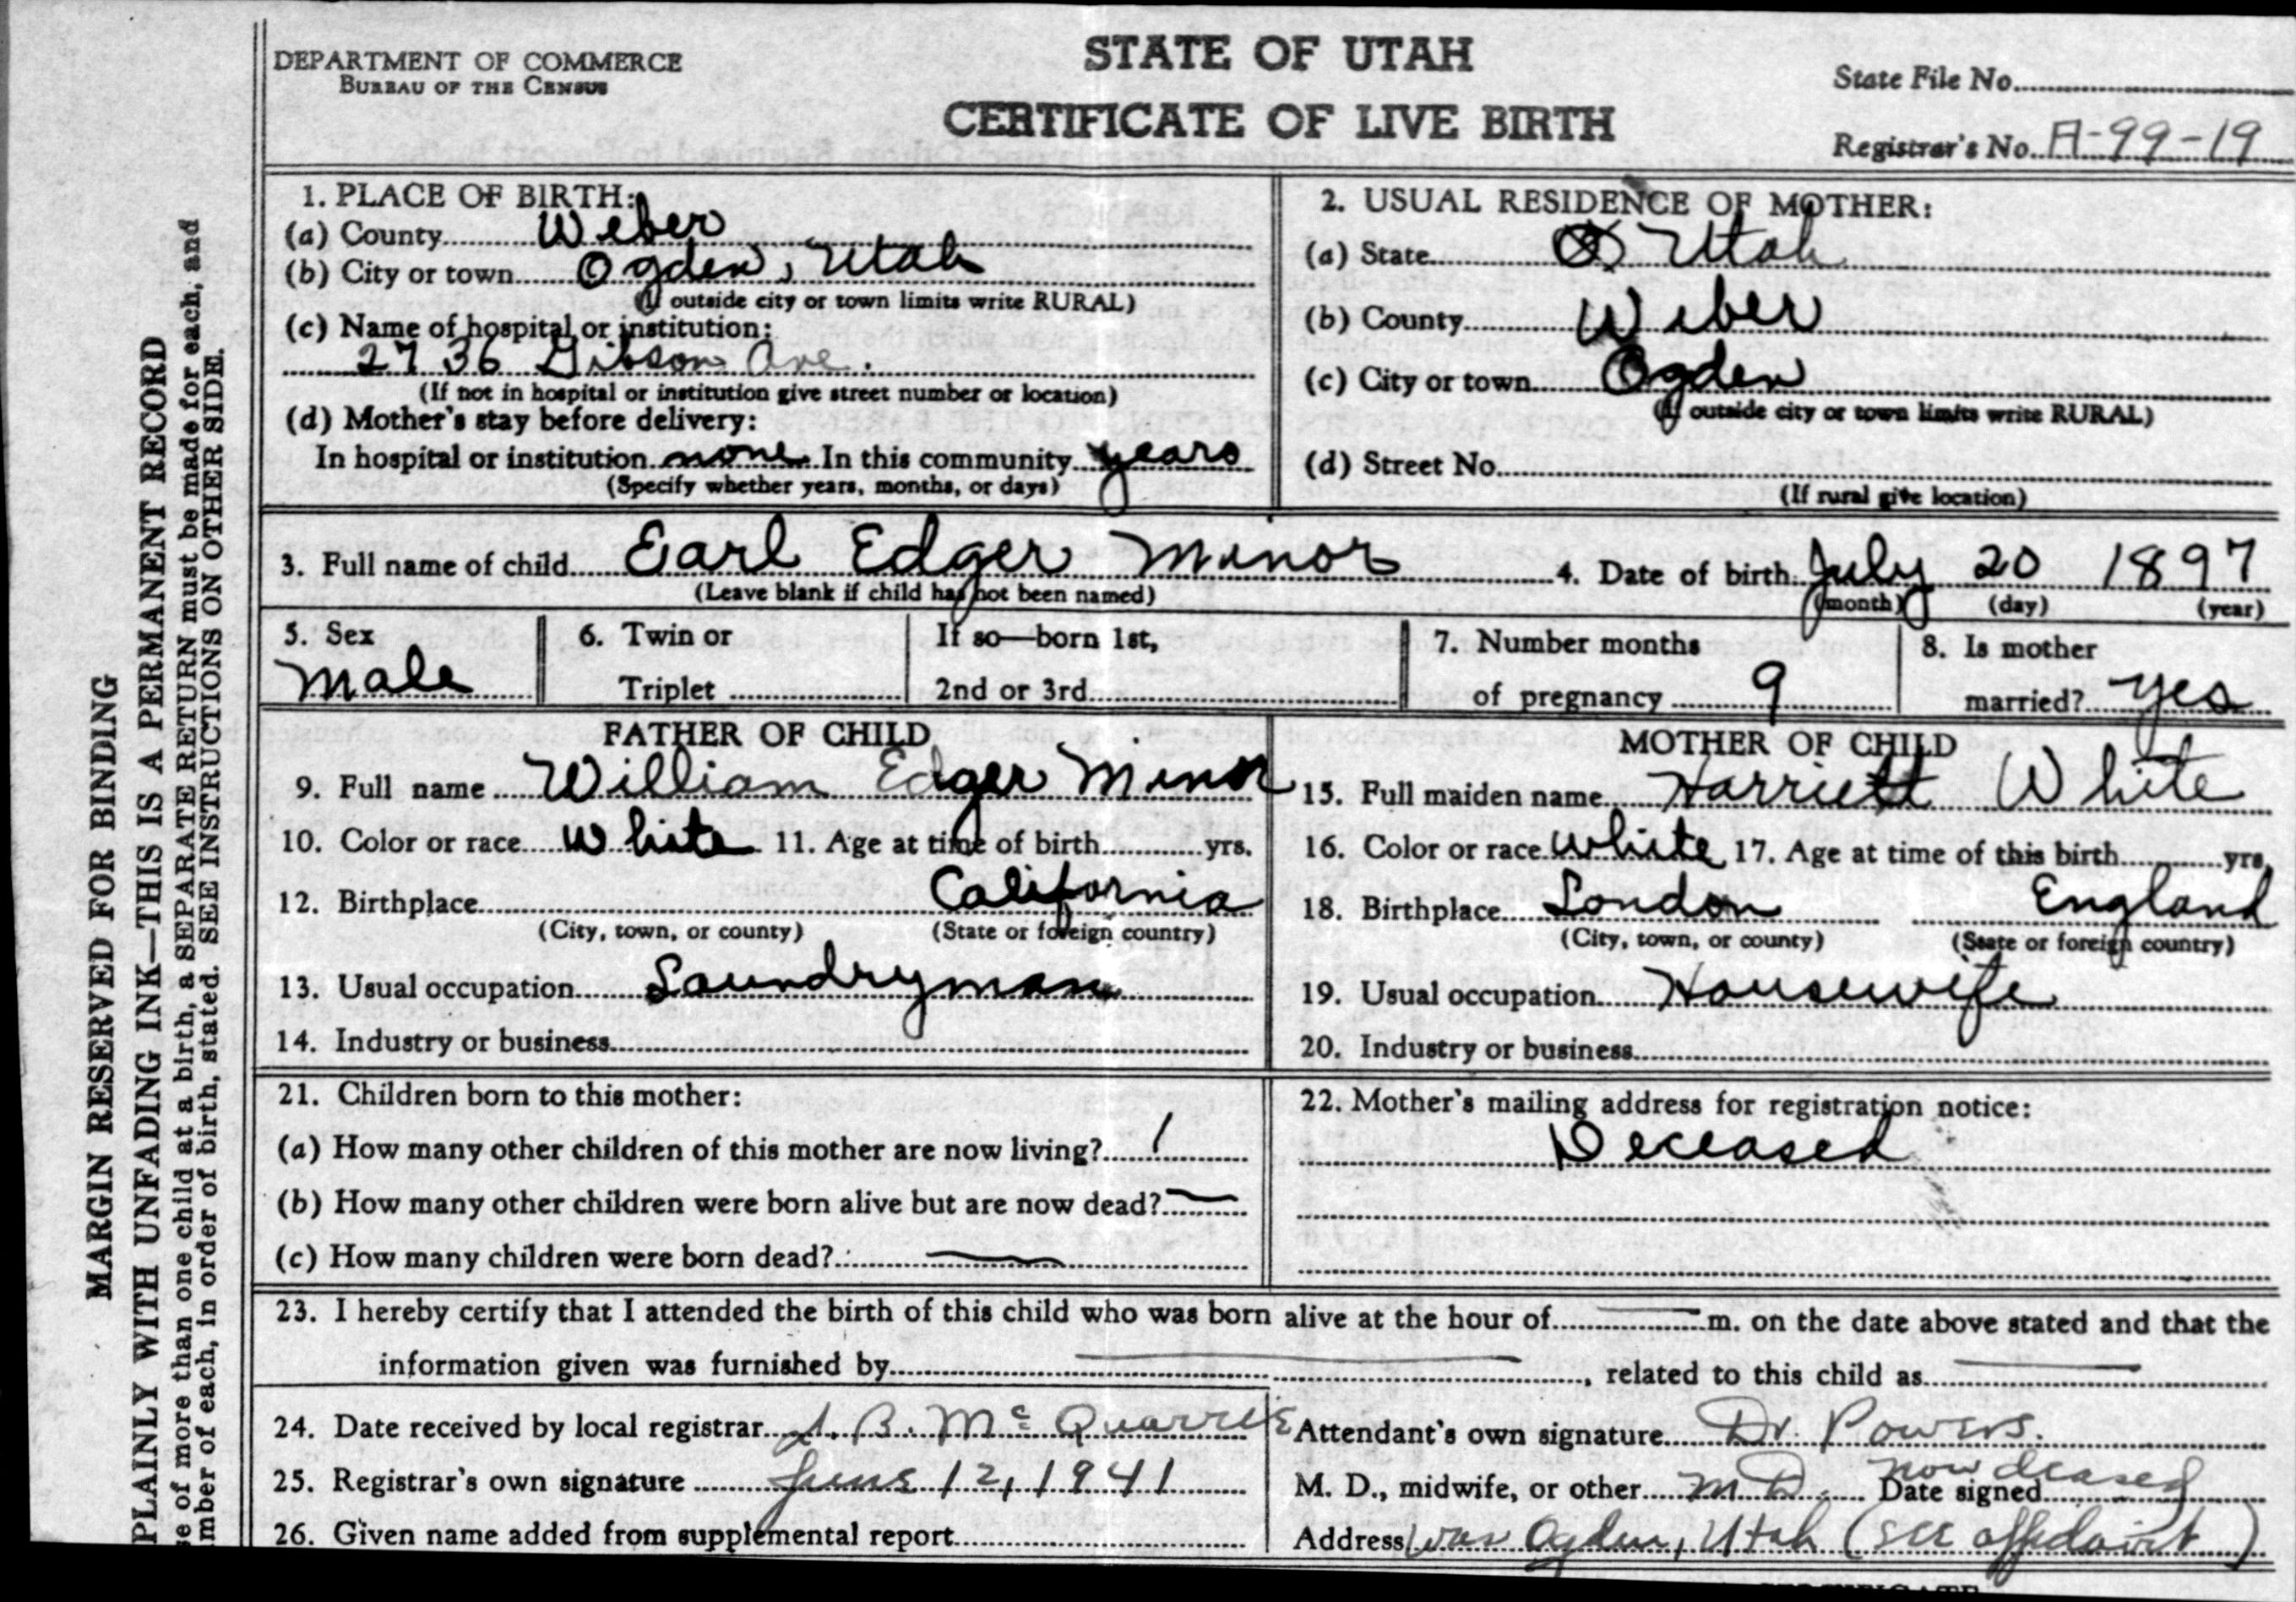 DEPARTMENT OF COMMERCE
BUREAU OF THE CENSUS
STATE OF UTAH
CERTIFICATE OF LIVE BIRTH
State File No.
Registrar's No. A-99-19
MARGIN RESERVED FOR BINDING
PLAINLY WITH UNFADING INK—THIS IS A PERMANENT RECORD
se of more than one child at a birth, a SEPARATE RETURN must be made for each, and
mber of each, in order of birth, stated. SEE INSTRUCTIONS ON OTHER SIDE.
1. PLACE OF BIRTH:
(a) County Weber
(b) City or town Ogden, Utah
(If outside city or town limits write RURAL)
(c) Name of hospital or institution:
2736 Gibson Ave.
(If not in hospital or institution give street number or location)
(d) Mother's stay before delivery:
In hospital or institution none In this community years
(Specify whether years, months, or days)
2. USUAL RESIDENCE OF MOTHER:
(a) State Utah
(b) County Weber
(c) City or town Ogden
(If outside city or town limits write RURAL)
(d) Street No.
(If rural give location)
3. Full name of child Earl Edger Minor 4. Date of birth July 20 1897
(Leave blank if child has not been named) (month) (day) (year)
5. Sex
Male
6. Twin or
Triplet
If so—born 1st,
2nd or 3rd
7. Number months
of pregnancy 9
8. Is mother
married? Yes
FATHER OF CHILD
9. Full name William Edger Minor
10. Color or race White 11. Age at time of birth yrs.
12. Birthplace California
(City, town, or county) (State or foreign country)
13. Usual occupation Laundryman
14. Industry or business
MOTHER OF CHILD
15. Full maiden name Harriett White
16. Color or race White 17. Age at time of this birth yrs.
18. Birthplace London England
(City, town, or county) (State or foreign country)
19. Usual occupation Housewife
20. Industry or business
21. Children born to this mother:
(a) How many other children of this mother are now living? 1
(b) How many other children were born alive but are now dead? —
(c) How many children were born dead? —
22. Mother's mailing address for registration notice:
Deceased
23. I hereby certify that I attended the birth of this child who was born alive at the hour of — m. on the date above stated and that the
information given was furnished by —, related to this child as —
24. Date received by local registrar B. McQuarrie
25. Registrar's own signature June 12, 1941
26. Given name added from supplemental report
Attendant's own signature Dr. Powers.
M. D., midwife, or other M.D. Date signed now deased
Address Was Ogden, Utah (see affidavit)